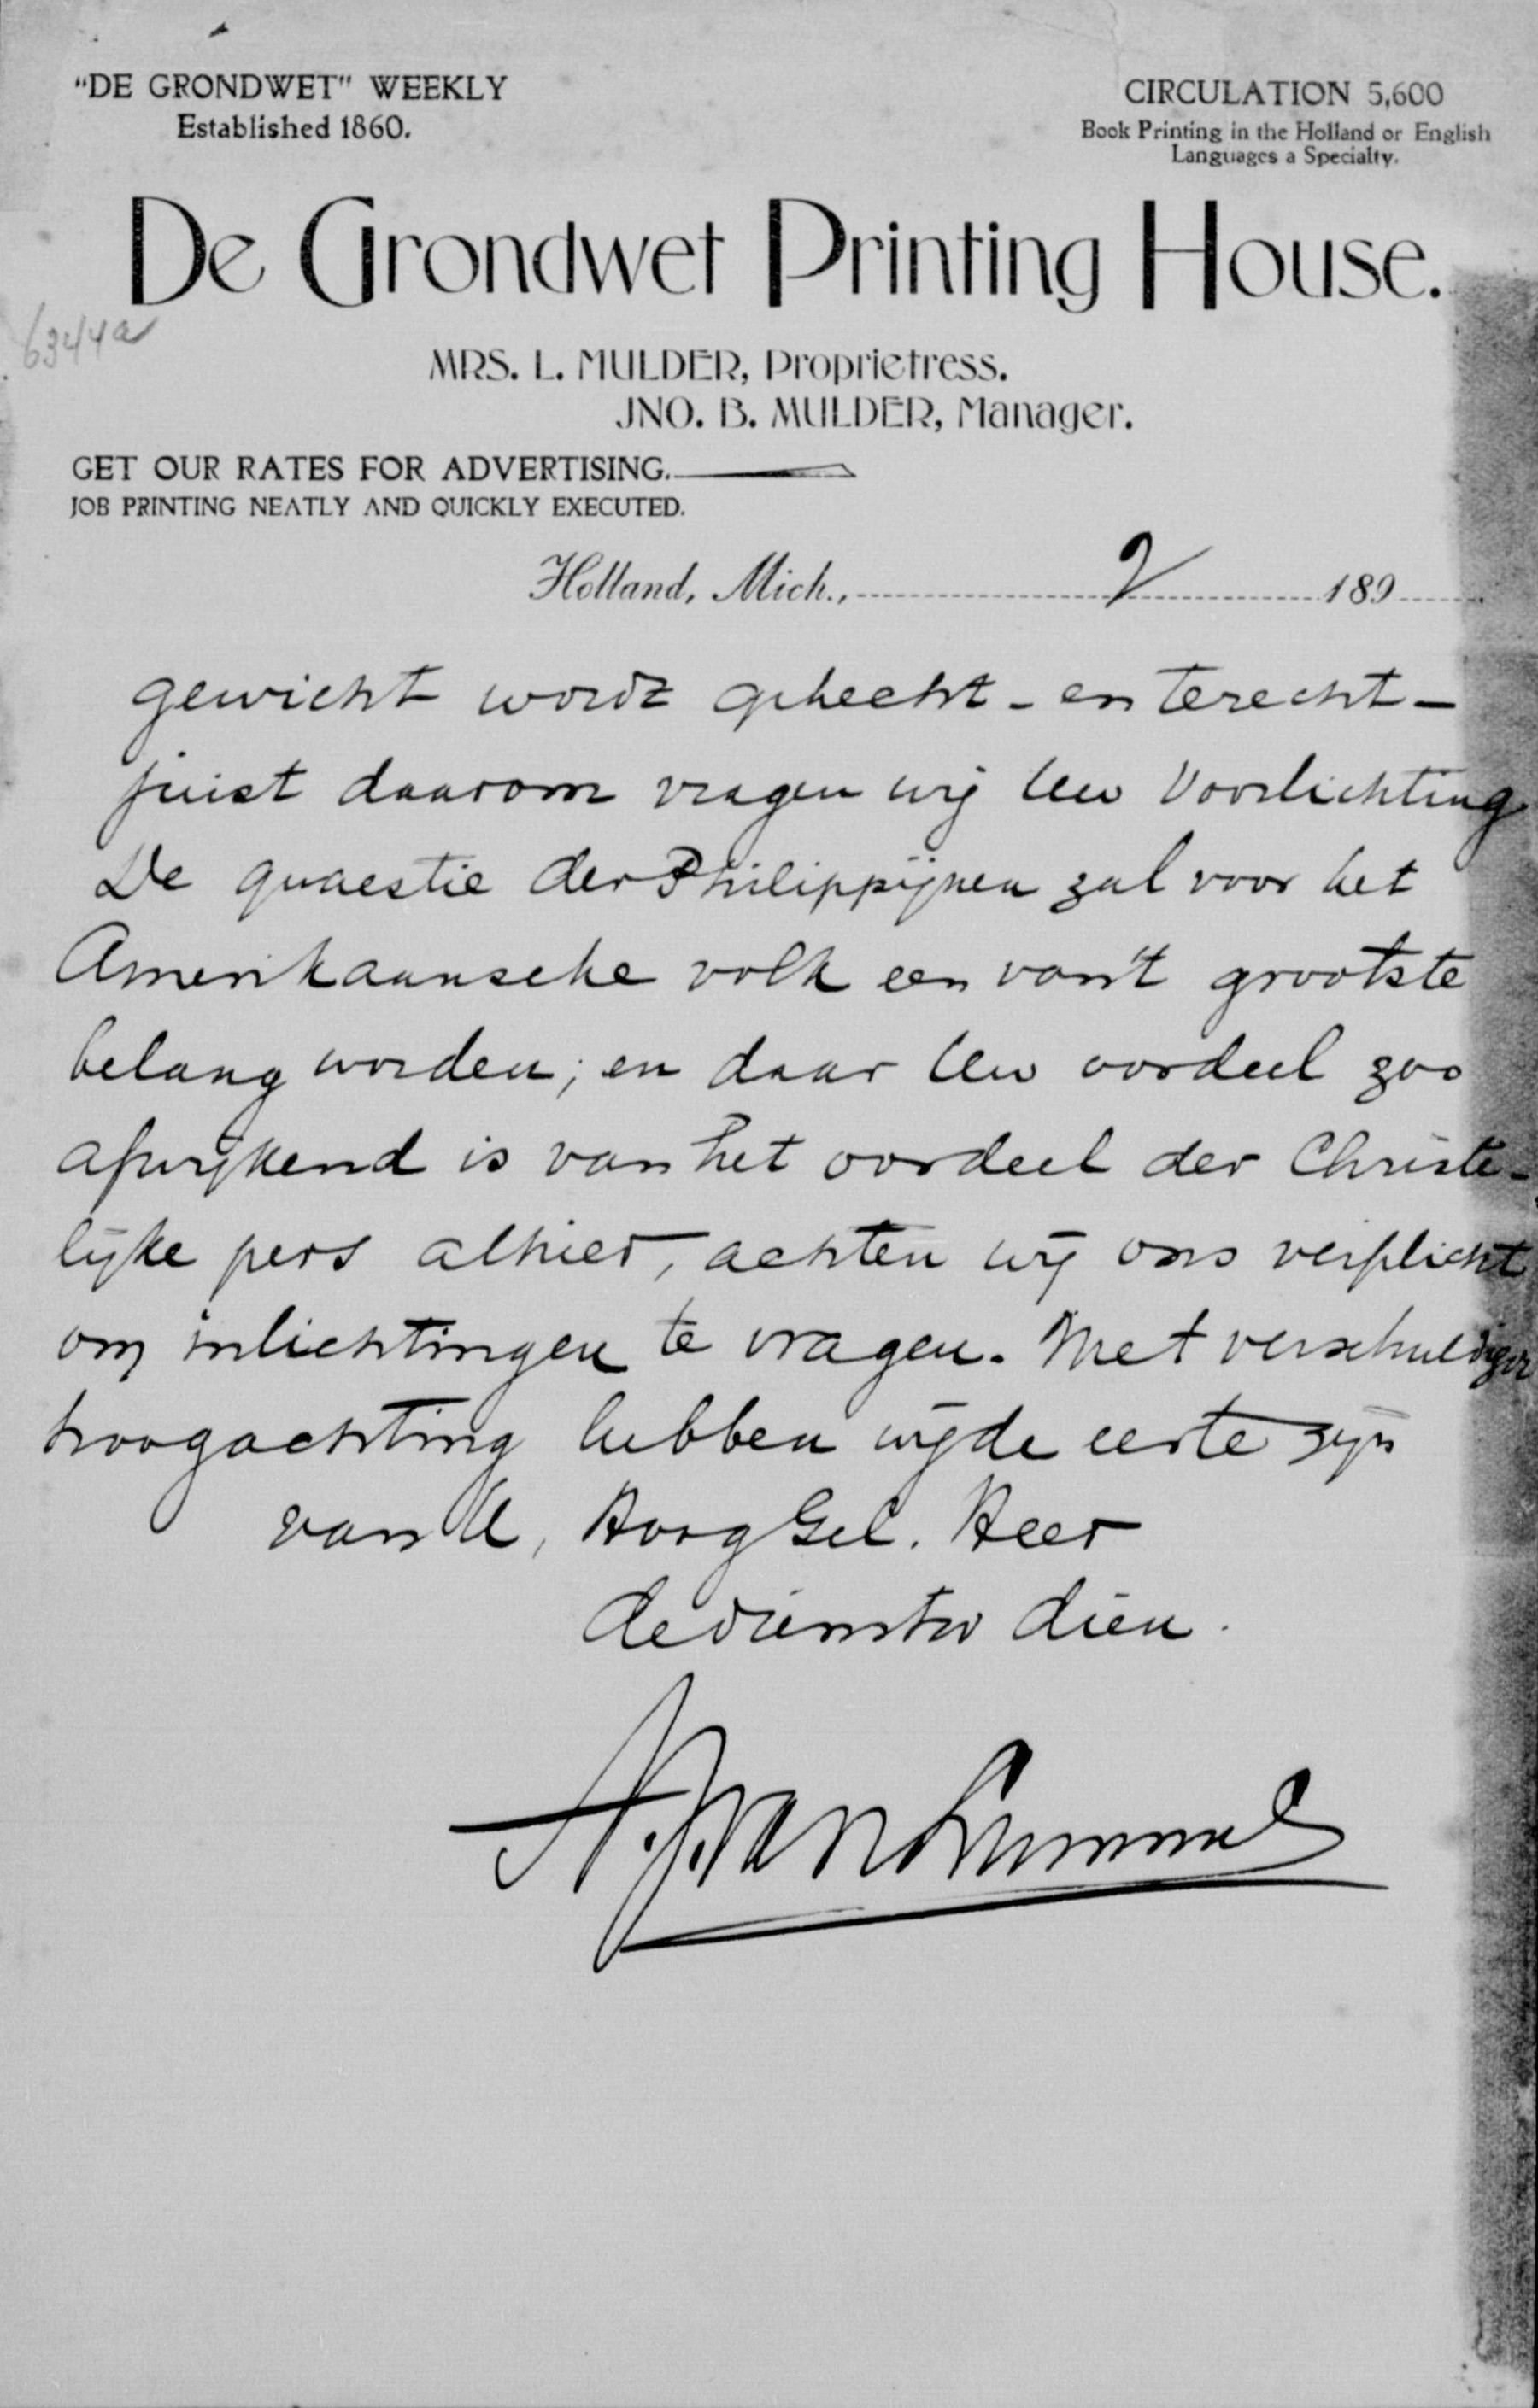 "DE GRONDWET" WEEKLY
Established 1860.
CIRCULATION 5,600
Book Printing in the Holland or English
Languages a Specialty.
De Grondwet Printing House.
6344a
MRS. L. MULDER, Proprietress.
JNO. B. MULDER, Manager.
GET OUR RATES FOR ADVERTISING.
JOB PRINTING NEATLY AND QUICKLY EXECUTED.
Holland, Mich., 2 189
gewicht wordt gehecht - en terecht -
juist daarom vragen wij Uw Voorlichting
De quaestie der Philippijnen zal voor het
Amerikaansche volk een van't grootste
belang worden; en daar Uw oordeel zoo
afwijkend is van het oordeel der Christe-
lijke pers alhier, achten wij ons verplicht
om inlichtingen te vragen. Met verschuldigde
hoogachting hebben wij de eer te zijn
van U, HoogGel. Heer
de dienstw dien.
A. J. Van Lummel